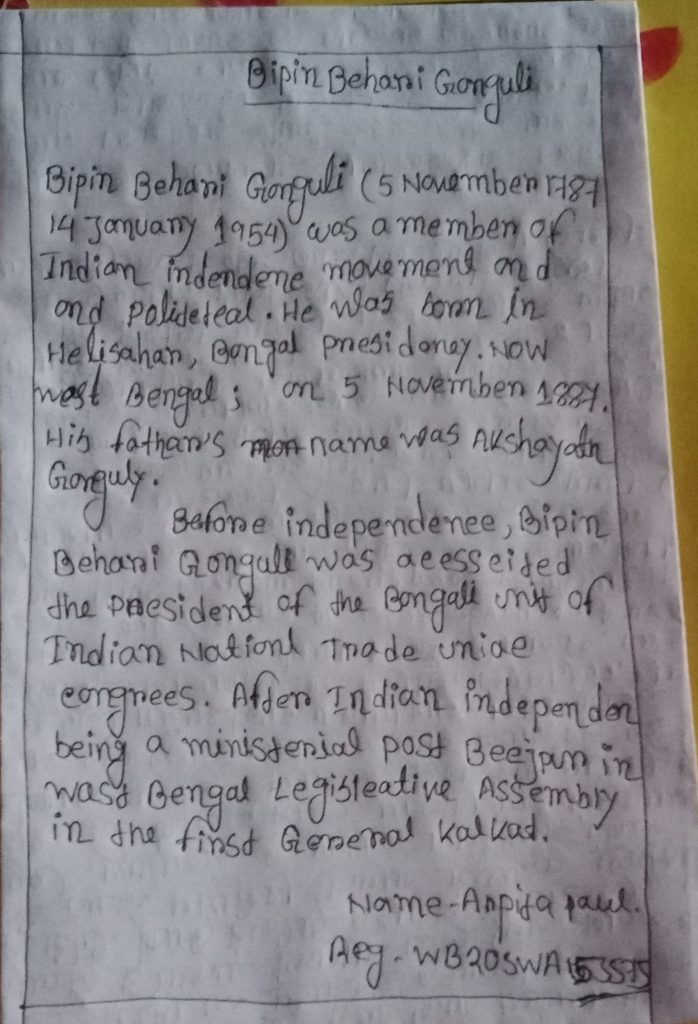 Bipin Behari Gonguli
Bipin Behari Gonguli (5 November 1787
14 January 1954) was a member of
Indian indendene movement and
and politeteal. He was born in
Helisahar, Bongal presidoney. Now
west Bengal; on 5 November 1887.
His fathar's name was Akshayoth
Gonguly.
Before independenee, Bipin
Behari Gongull was aeesseited
the president of the Bongali unit of
Indian Nationl Trade uniae
eongrees. After Indian independen
being a ministerial post Beejpur in
wast Bengal Legisleative Assembly
in the first General Kalkad.
Name-Arpita paul.
Reg - WB20SWA153575